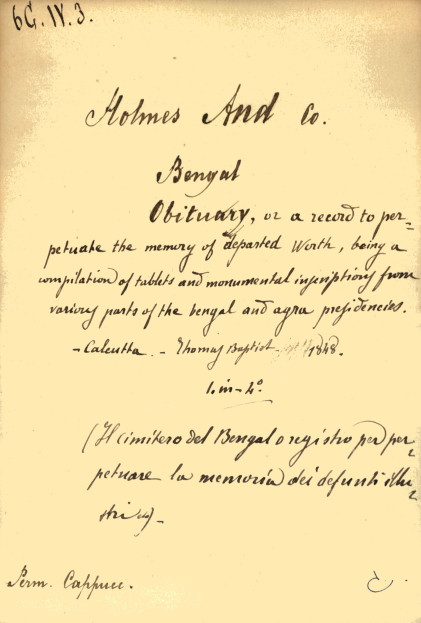 6G. IV. 3.
Holmes And Co.
Bengal
Obituary, or a record to per=
petuate the memory of departed Worth, being a
compilation of tablets and monumental inscriptions from
various parts of the bengal and agra presidencies.
- Calcutta. - Thomas Baptist 1848.
1. in - 4°
(Il cimitero del Bengal o registro per per=
petuare la memoria dei defunti illu=
stri)-
Perm. Cappucc.
C.